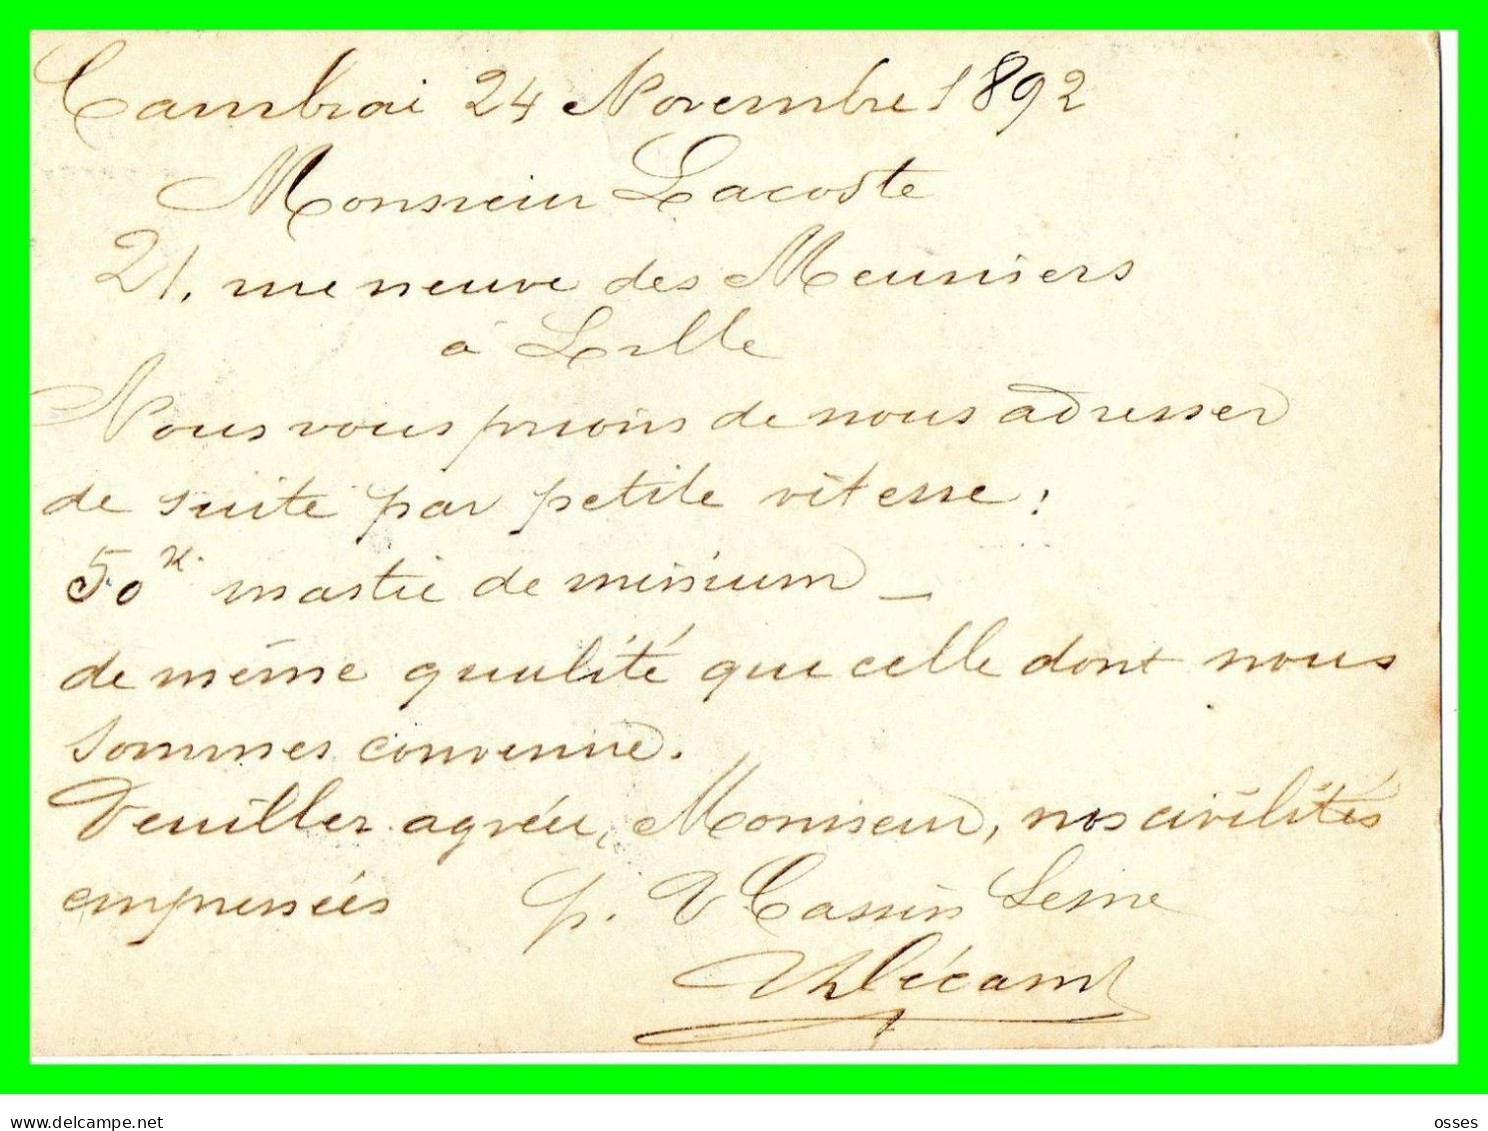 Cambrai 24 Novembre 1892
Monsieur Lacoste
21, rue neuve des Meuniers
à Lille
Nous vous prions de nous adresser
de suite par petite vitesse :
50 k. mastic de minium _
de même qualité que celle dont nous
sommes convenus.
Veuillez agréer, Monsieur, nos civilités
empressées p. V Cassin
delcampe.net
osses